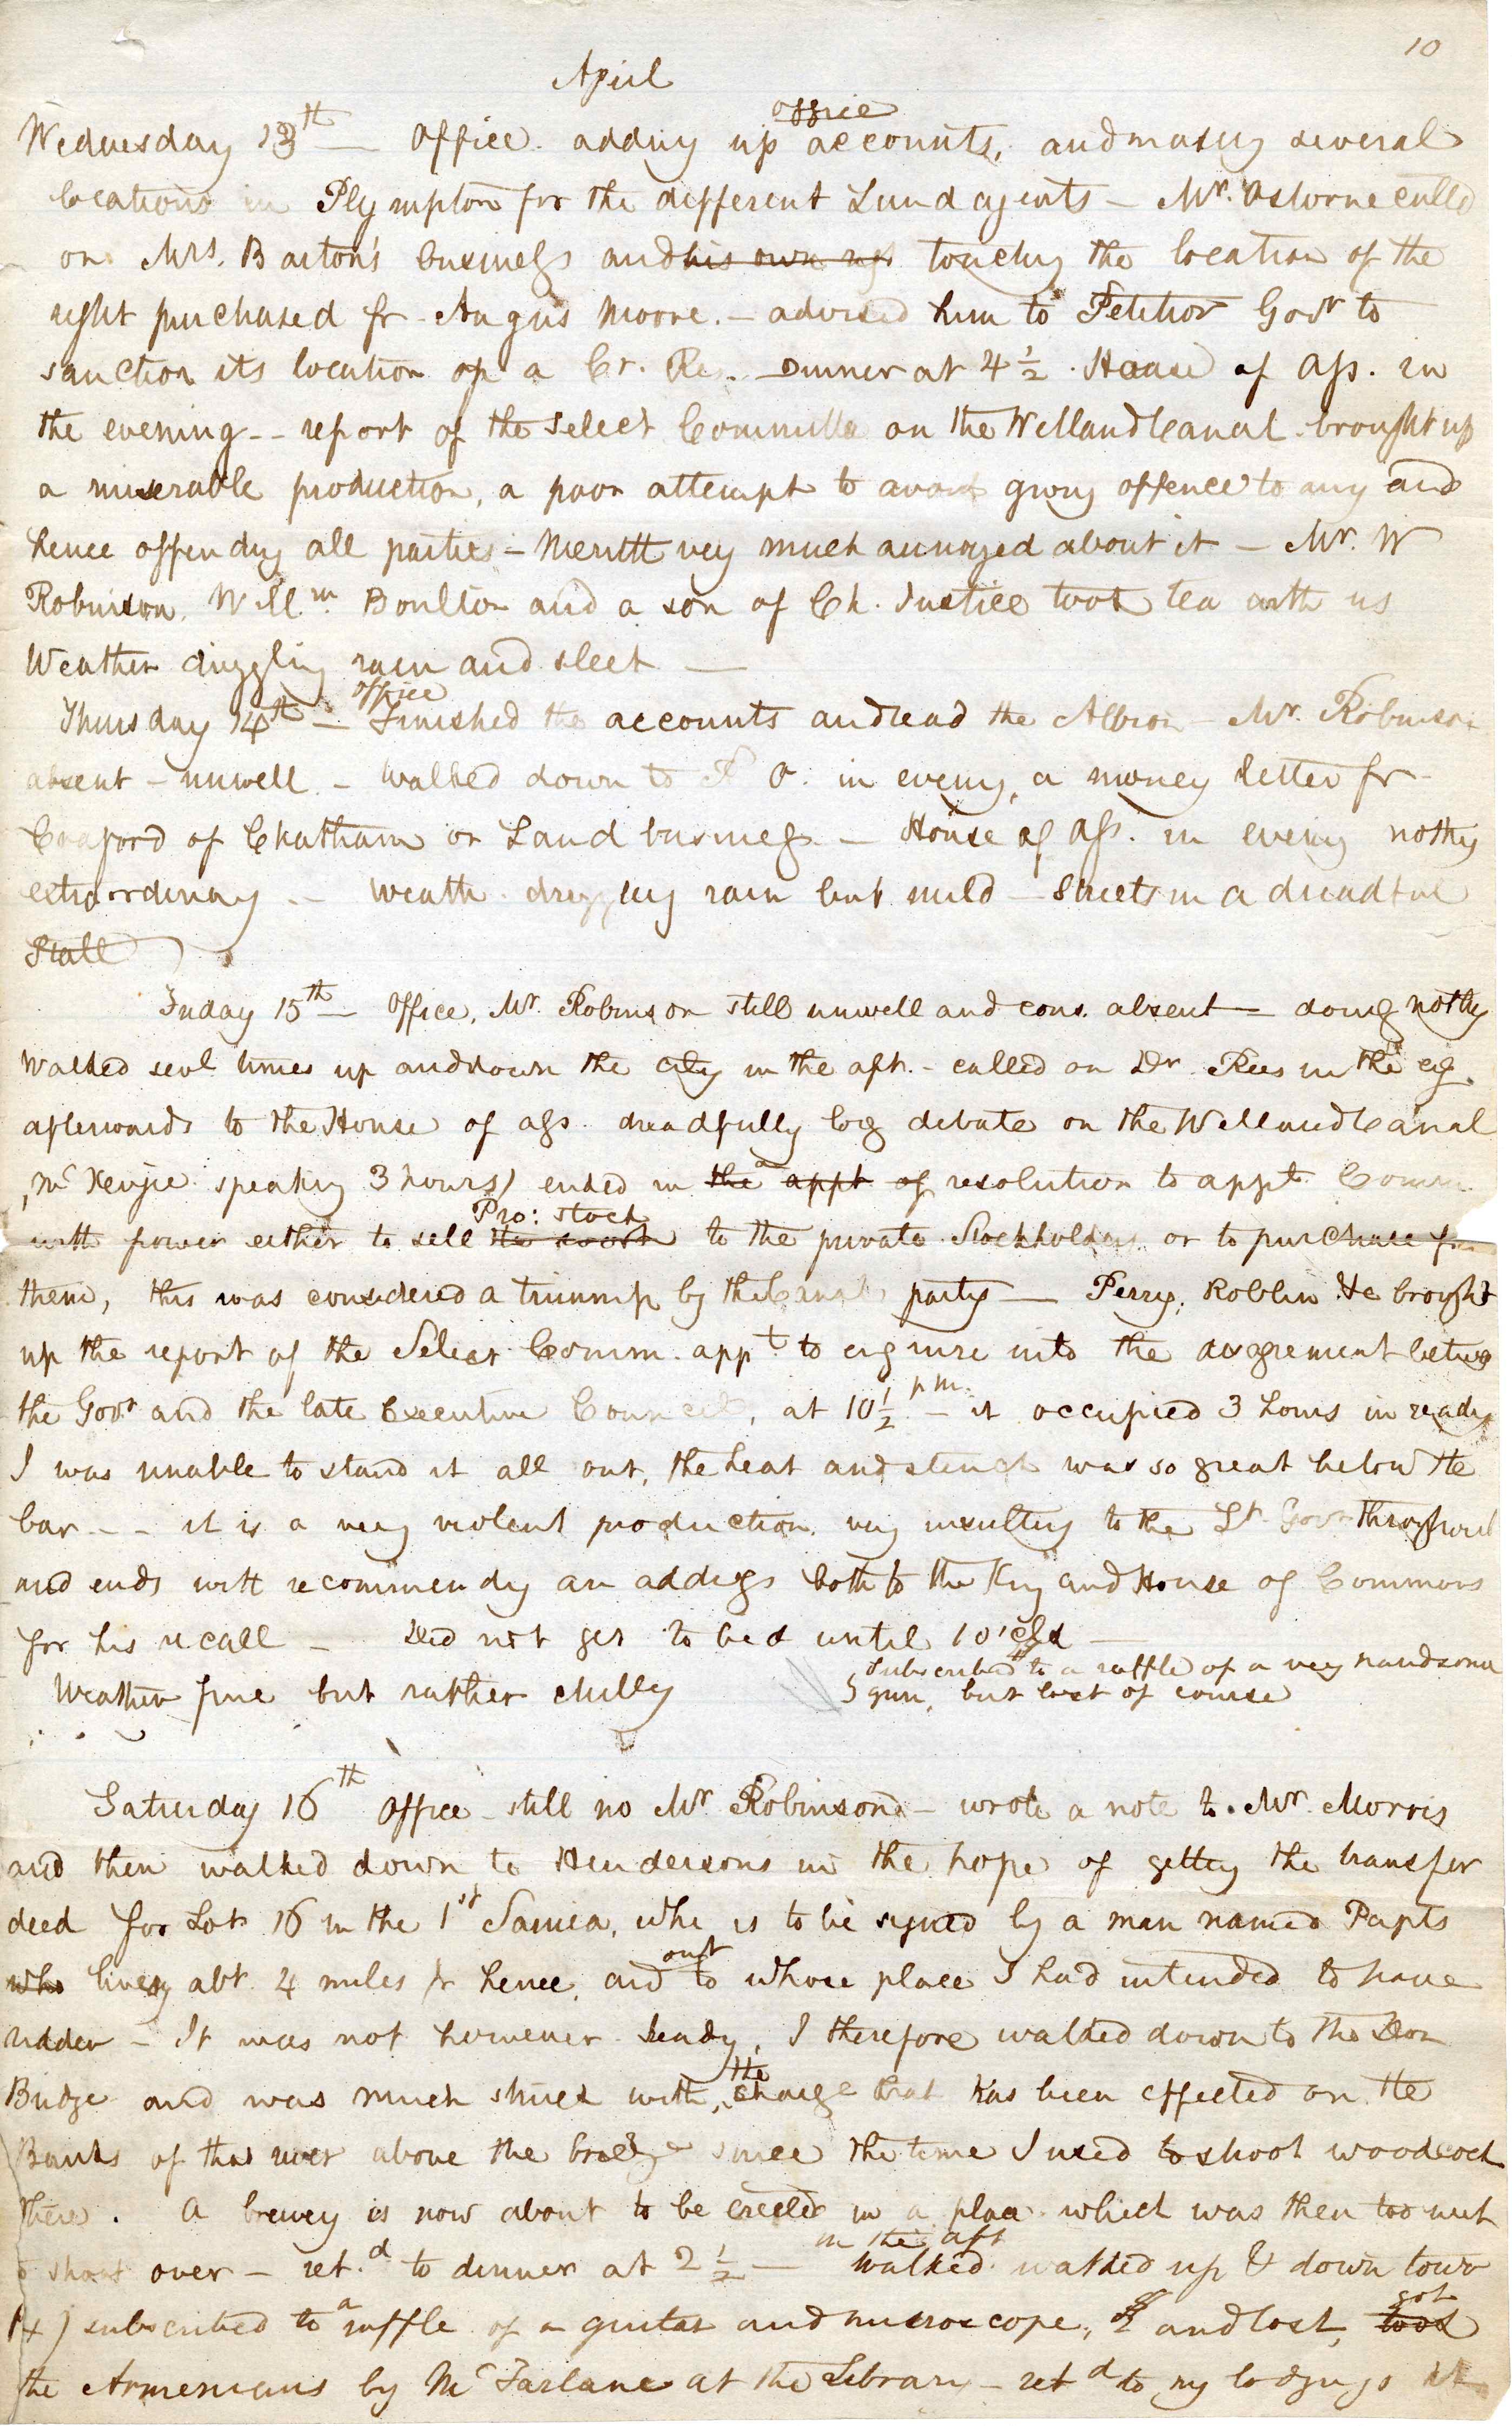 10
April
Wednesday 13th — Office. adding up office accounts, and making several
locations in Plympton for the different Land agents — Mr. Osborne called
on Mrs. Barton's business and his own rgt touching the location of the
right purchased fr. Angus Moore. — advised him to Petition Govr to
sanction its location on a Cr. Re. — Dinner at 4 ½ . House of Ass. in
the evening -- report of the select Committee on the Welland Canal brought up
a miserable production, a poor attempt to avoid giving offence to any and
hence offending all parties — Merritt very much annoyed about it — Mr. W
Robinson, Willm. Boulton and a son of Ch. Justice took tea with us
Weather drizzling rain and sleet —
Thursday 14th — Finished the office accounts and read the Albion — Mr. Robinson
absent — unwell — walked down to P O. in eveng, a money letter fr
of Chatham on Land business — House of Ass. in eveng nothg
extraordinary — weath. drizzling rain but mild — Streets in a dreadful
State
Friday 15th — Office, Mr. Robinson still unwell and cons. absent — doing nothg
walked sevl times up and down the city in the aft. — called on Dr. Rees in the eg.
afterwards to the House of ass. dreadfully log debate on the Welland Canal
(McKenzie speaking 3 hours) ended in the appt of a resolution to appt. Comm.
with power either to sell the work Pro: stock to the private Stockholders or to purchase fr
them, this was considered a triump by the Canal party — Perry, Roblin &c brought
up the report of the Select Comm. appt to enquire into the disagrement betwee
the Govr and the late Executive Council, at 10 ½ pm. — it occupied 3 hours in readg
I was unable to stand it all out, the heat and stench was so great below the
bar — — it is a very violent production, very insulting to the Lt. Govr throughout
and ends with recommendg an address both to the King and House of Commons
for his recall — Did not get to bed until 1 o'clk —
Subscribed to a raffle of a very handsome
Weather fine but rather chilly
gun, but lost of course
Saturday 16th Office — still no Mr Robinson — wrote a note to Mr. Morris
and then walked down to Hendersons in the hope of gettg the transfer
deed for Lot 16 in the 1st Sarnia, whc is to be signed by a man named
who living abt 4 miles fr hence, and out to whose place I had intended to have
ridden — It was not however ready, I therefore walked down to the Don
Bridge and was much struck with the change that has been effected on the
Banks of that river above the bridge since the time I used to shoot woodcock
there. A brewey is now about to be erected in a place which was then too wet
to shoot over — ret.d to dinner at 2 ½ — in the aft walked walked up & down town
(x) subscribed to a raffle of a guitar and microscope, and lost, took got
the Armenians by McFarlane at the Library — retd to my lodgings at